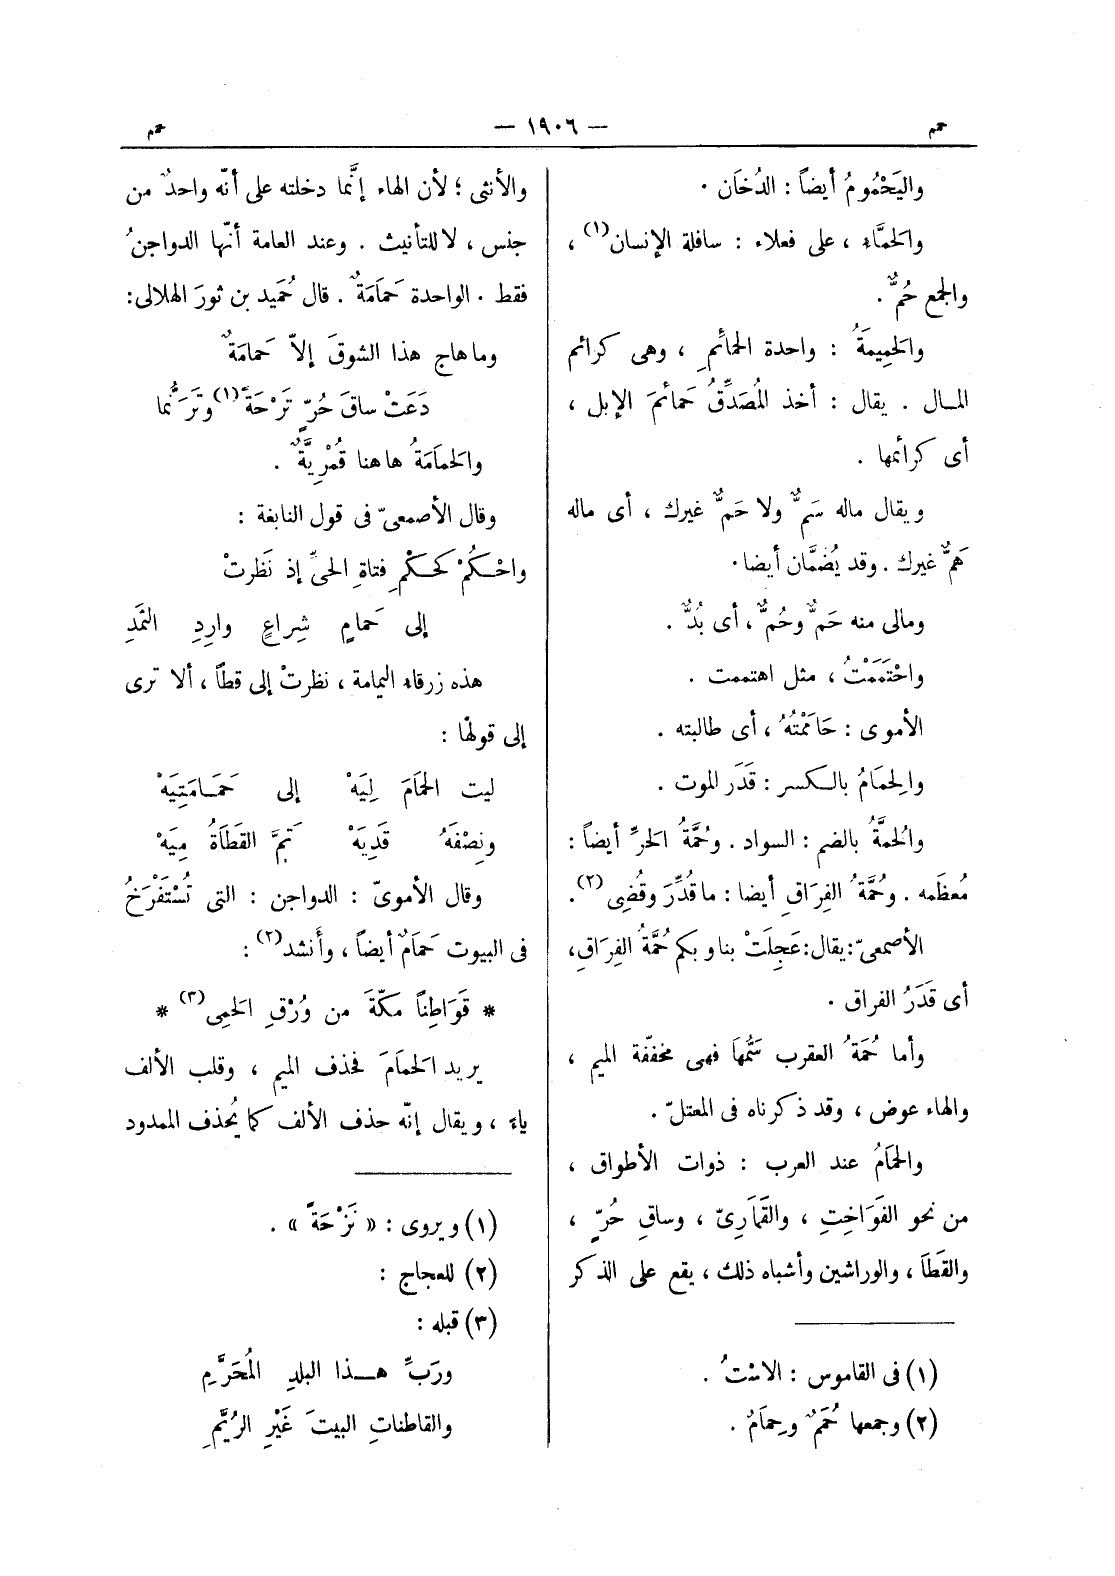 حمم
— ١٩٠٦ —
حمم
واليَحْمُومُ أيضاً : الدُخَان .
والحَمَّاء ، على فعلاء : سافلة الإنسان(١) ،
والجمع حُمٌّ .
والحَمِيمَةُ : واحدة الحمائِم ، وهى كرائم
المـال . يقال : أخذ المُصَدِّقُ حَمائمَ الإبل ،
أى كرائمها .
ويقال ماله سَمٌّ ولا حَمٌّ غيرك ، أى ماله
هَمٌّ غيرك . وقد يُضَمَّان أيضا .
ومالى منه حَمٌّ وحُمٌّ ، أى بُدٌّ .
واحْتَمَمْتُ ، مثل اهتممت .
الأموى : حَامَمْتُهُ ، أى طالبته .
والحِمَامُ بالـكسر : قَدَر الموت .
والحُمَّةُ بالضم : السواد . وحُمَّةُ الحَرِّ أيضاً :
مُعظَمه . وحُمَّةُ الفِرَاقِ أيضا : ما قُدِّرَ وقُضِى(٢) .
الأصمعىّ: يقال: عَجِلَتْ بنا وبكم حُمَّةُ الفِرَاقِ،
أى قَدَرُ الفراق .
وأما حُمَةُ العقرب سَمُّهَا فهى مخفّفة الميم ،
والهاء عوض ، وقد ذكرناه فى المعتلّ .
والحَمَامُ عند العرب : ذوات الأطواق ،
من نحو الفَوَاخِتِ ، والقَمَارِىّ ، وساقِ حُرٍّ ،
والقَطَا ، والوراشين وأشباه ذلك ، يقع على الذكر
(١) فى القاموس : الاسْتُ .
(٢) وجمعها حُمَمٌ وحِمَامٌ .
والأنثى ؛ لأن الهاء إنَّما دخلته على أنّه واحدٌ من
جنس ، لا للتأنيث . وعند العامة أنّها الدواجنُ
فقط . الواحدة حَمَامَةٌ . قال حُمَيد بن ثورَ الهلالى:
وما هاج هذا الشوقَ إلاّ حَمامَةٌ
دَعَتْ ساقَ حُرٍّ تَرْحَةً(١) وتَرَنُّما
والحَمَامَةُ هاهنا قُمْرِيَّةٌ .
وقال الأصمعىّ فى قول النابغة :
واحْـكُمْ كَحُـكْمِ فتاةِ الحىِّ إذ نَظَرتْ
إلى حَمامٍ شِراعٍ وارِدِ الثَمَدِ
هذه زرقاء اليمامة ، نظرتْ إلى قطاً ، ألا ترى
إلى قولها :
ليت الحَمَامَ لِيَهْ إلى حَمَـامَتِيَهْ
ونِصْفَهُ قَدِيَهْ تَمَّ القَطَاةُ مِيَهْ
وقال الأموىّ : الدواجن : التى تُسْتَفْرَخُ
فى البيوت حَمَامٌ أيضاً ، وأنشد(٢) :
* قَوَاطِناً مَكّةَ من وُرْقِ الحَمِى(٣) *
يريد الحَمَامَ فحذف الميم ، وقلب الألف
ياء ، ويقال إنّه حذف الألف كما يُحذف الممدود
(١) ويروى : « نَرْحَةً » .
(٢) للعجاج :
(٣) قبله :
ورَبِّ هـــذا البلدِ المُحَرَّمِ
والقاطناتِ البيتَ غَيْرِ الرُيَّمِ